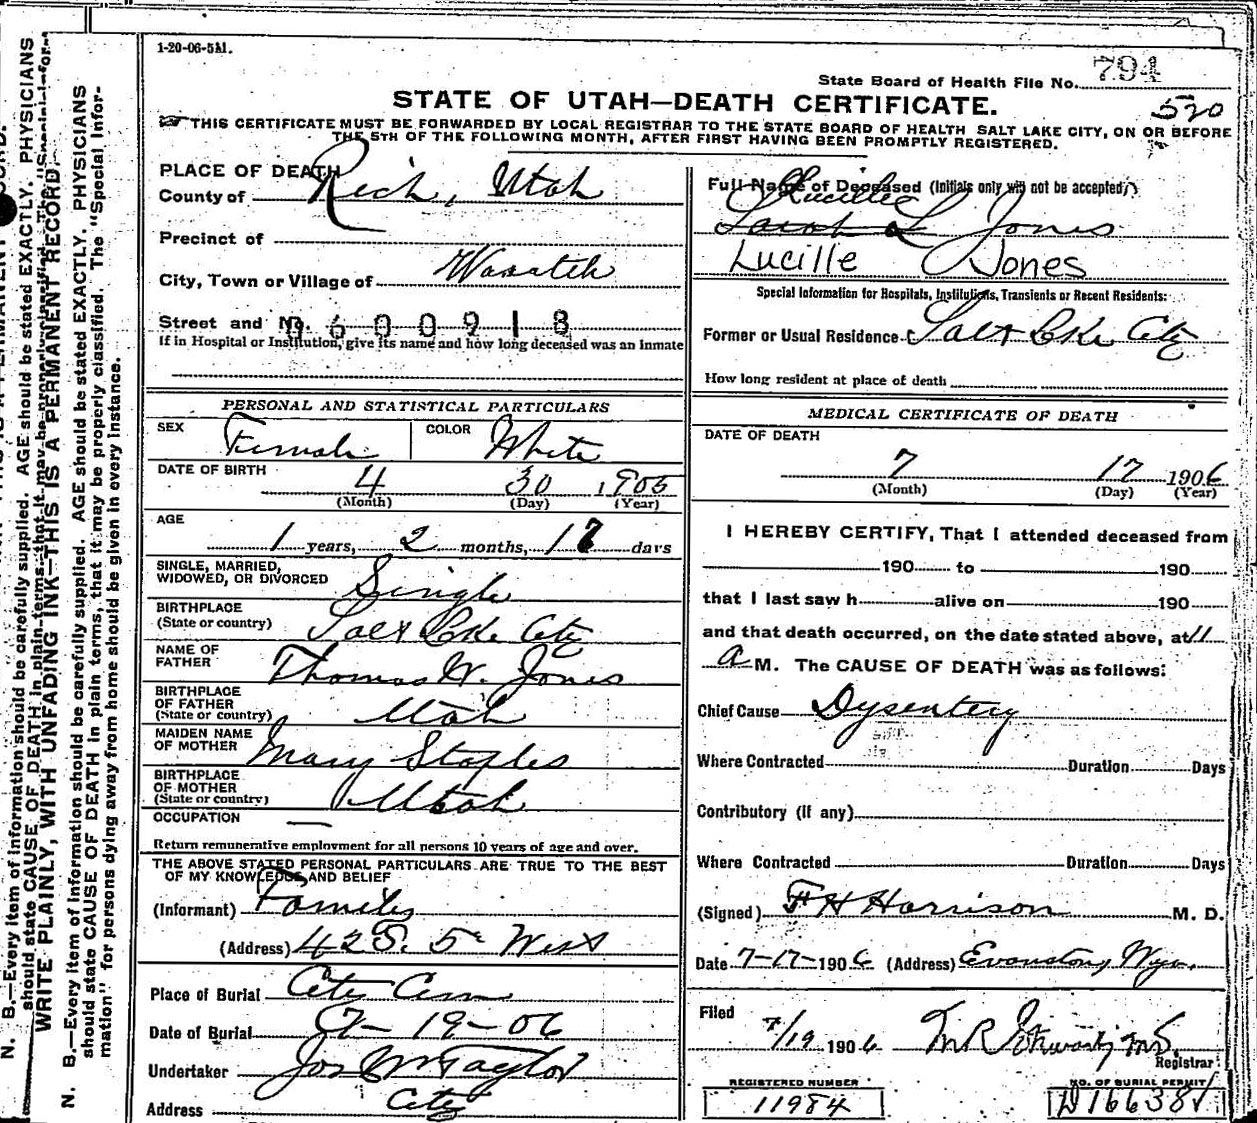 1-20-06-5M.
State Board of Health File No. 794
520
STATE OF UTAH—DEATH CERTIFICATE.
THIS CERTIFICATE MUST BE FORWARDED BY LOCAL REGISTRAR TO THE STATE BOARD OF HEALTH SALT LAKE CITY, ON OR BEFORE
THE 5TH OF THE FOLLOWING MONTH, AFTER FIRST HAVING BEEN PROMPTLY REGISTERED.
PLACE OF DEATH
County of Rich, Utah
Precinct of
City, Town or Village of Wasatch
Street and No. 0600918
If in Hospital or Institution, give its name and how long deceased was an inmate
PERSONAL AND STATISTICAL PARTICULARS
SEX Female COLOR White
DATE OF BIRTH 4 30 1905
(Month) (Day) (Year)
AGE
1 years, 2 months, 17 days
SINGLE, MARRIED,
WIDOWED, OR DIVORCED Single
BIRTHPLACE
(State or country) Salt Lke City
NAME OF
FATHER Thomas W. Jones
BIRTHPLACE
OF FATHER
(State or country) Utah
MAIDEN NAME
OF MOTHER Mary Staples
BIRTHPLACE
OF MOTHER
(State or country) Utah
OCCUPATION —
Return remunerative employment for all persons 10 years of age and over.
THE ABOVE STATED PERSONAL PARTICULARS ARE TRUE TO THE BEST
OF MY KNOWLEDGE AND BELIEF
(Informant) Family
(Address) 428. 5 West
Place of Burial City Cem
Date of Burial 7-19-06
Undertaker Jos Wm Taylor
Address City
Full Name of Deceased (Initials only will not be accepted)
Lucille
Sarah L Jones
Lucille Jones
Special Information for Hospitals, Institutions, Transients or Recent Residents:
Former or Usual Residence Salt Lke City
How long resident at place of death
MEDICAL CERTIFICATE OF DEATH
DATE OF DEATH
7 17 1906
(Month) (Day) (Year)
I HEREBY CERTIFY, That I attended deceased from
190 to 190
that I last saw h alive on 190
and that death occurred, on the date stated above, at 11
a M. The CAUSE OF DEATH was as follows:
Chief Cause Dysentery
Where Contracted Duration Days
Contributory (if any)
Where Contracted Duration Days
(Signed) F H Harrison M. D.
Date 7-17-1906 (Address) Evanston, Wyo.
Filed
7/19 1906
Registrar
REGISTERED NUMBER
11984
NO. OF BURIAL PERMIT
D16638
N. B.—Every item of information should be carefully supplied. AGE should be stated EXACTLY. PHYSICIANS
should state CAUSE OF DEATH in plain terms, that it may be properly classified. The "Special Infor-
WRITE PLAINLY, WITH UNFADING INK—THIS IS A PERMANENT RECORD
N. B.—Every item of information should be carefully supplied. AGE should be stated EXACTLY. PHYSICIANS
should state CAUSE OF DEATH in plain terms, that it may be properly classified. The "Special Infor-
mation" for persons dying away from home should be given in every instance.